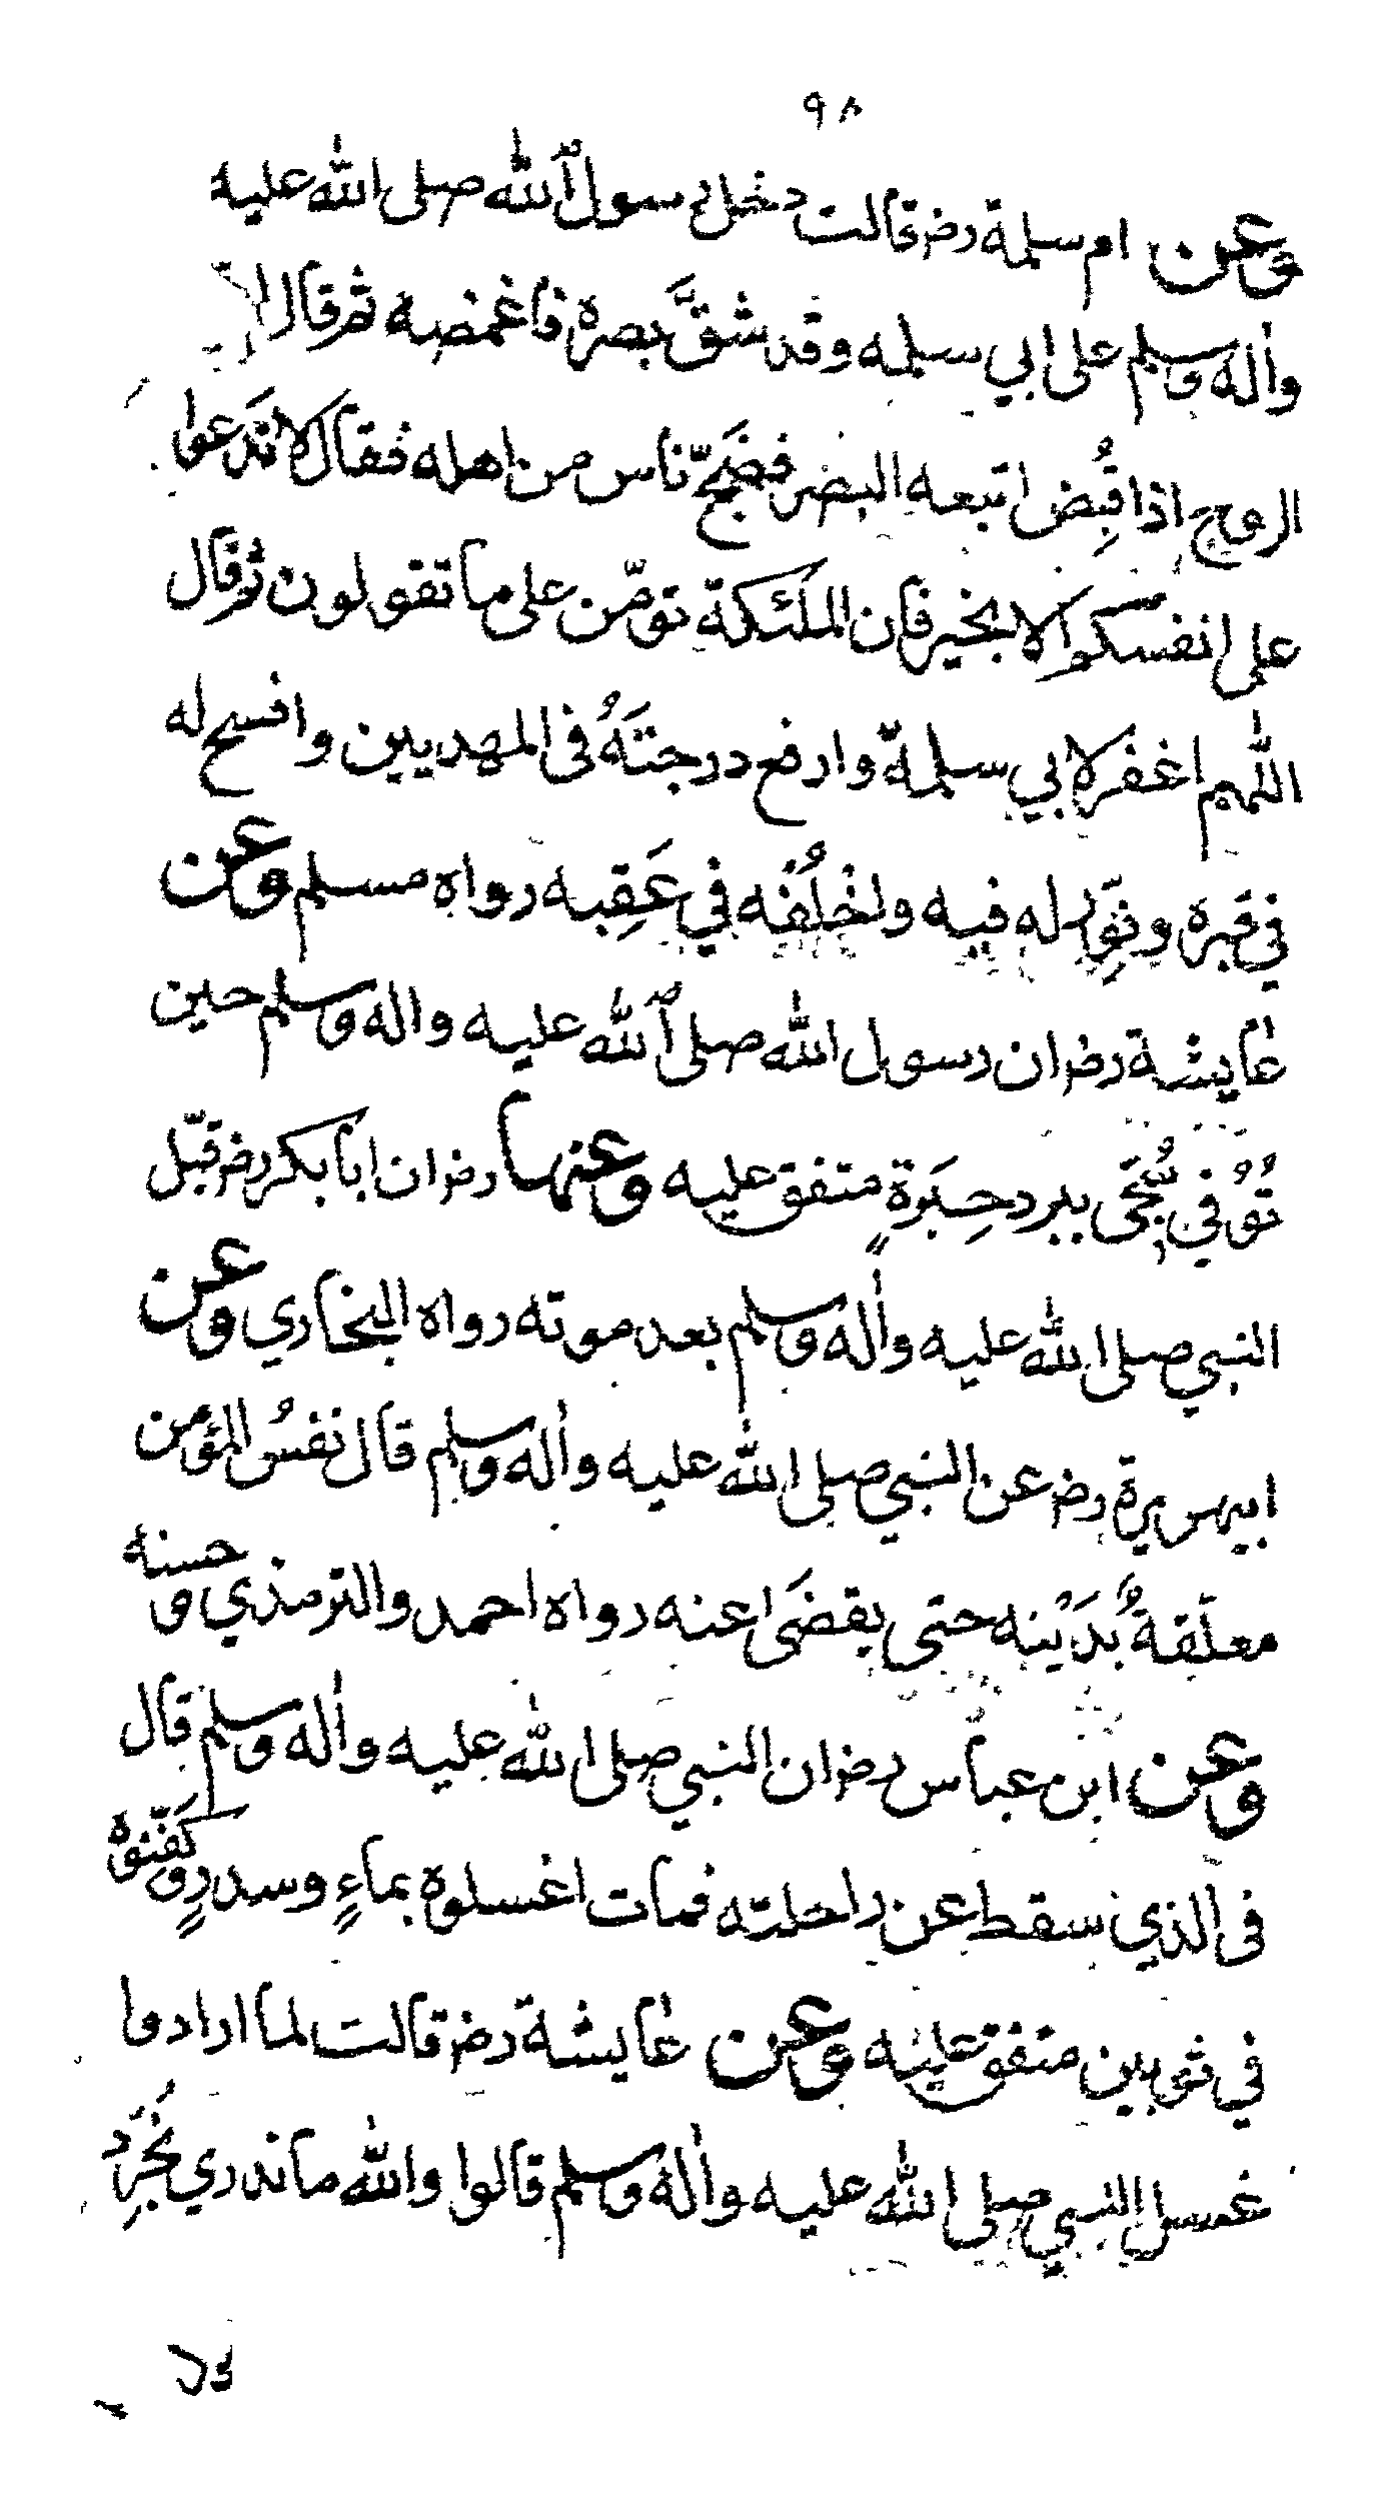 ٩٨
وعن ام سلمة رض قالت دخل رسول الله صلى الله عليه
واله وسلم على ابي سلمه وقد شقَّ بصره فاغمضه ثم قال
الروح اذا قُبِض اتبعه البصر فضَجَّ ناس من اهله فقال لا تدَعوا
على انفسكم الا بخير فان الملئكة تؤمّن على ما تقولون ثم قال
اللهم اغفر لابي سلمة وارفع درجتَهُ فى المهديين وافسح له
في قبره ونوِّر له فيه واخلُفْه في عَقِبه رواه مسلم وعن
عايشة رض ان رسول الله صلى الله عليه واله وسلم حين
تُوُفي سُجّى ببرد حِبَرةٍ متفق عليه وعنها رض ان ابا بكر رض قبّل
النبي صلى الله عليه واله وسلم بعد موته رواه البخاري وعن
ابيهريرة رض عن النبي صلى الله عليه واله وسلم قال نفسُ المؤمن
معلّقةٌ بدَيْنه حتى يقضَى عنه رواه احمد والترمذي وحسنه
وعن ابن عباس رض ان النبي صلى الله عليه واله وسلم قال
فى الذي سقط عن راحلته فمات اغسلوه بماءٍ وسدرٍ وكَفّنوه
في ثوبين متفق عليه وعن عايشة رض قالت لما ارادوا
غسل النبي صلى الله عليه واله وسلم قالوا والله ما ندري نُجَرِّد